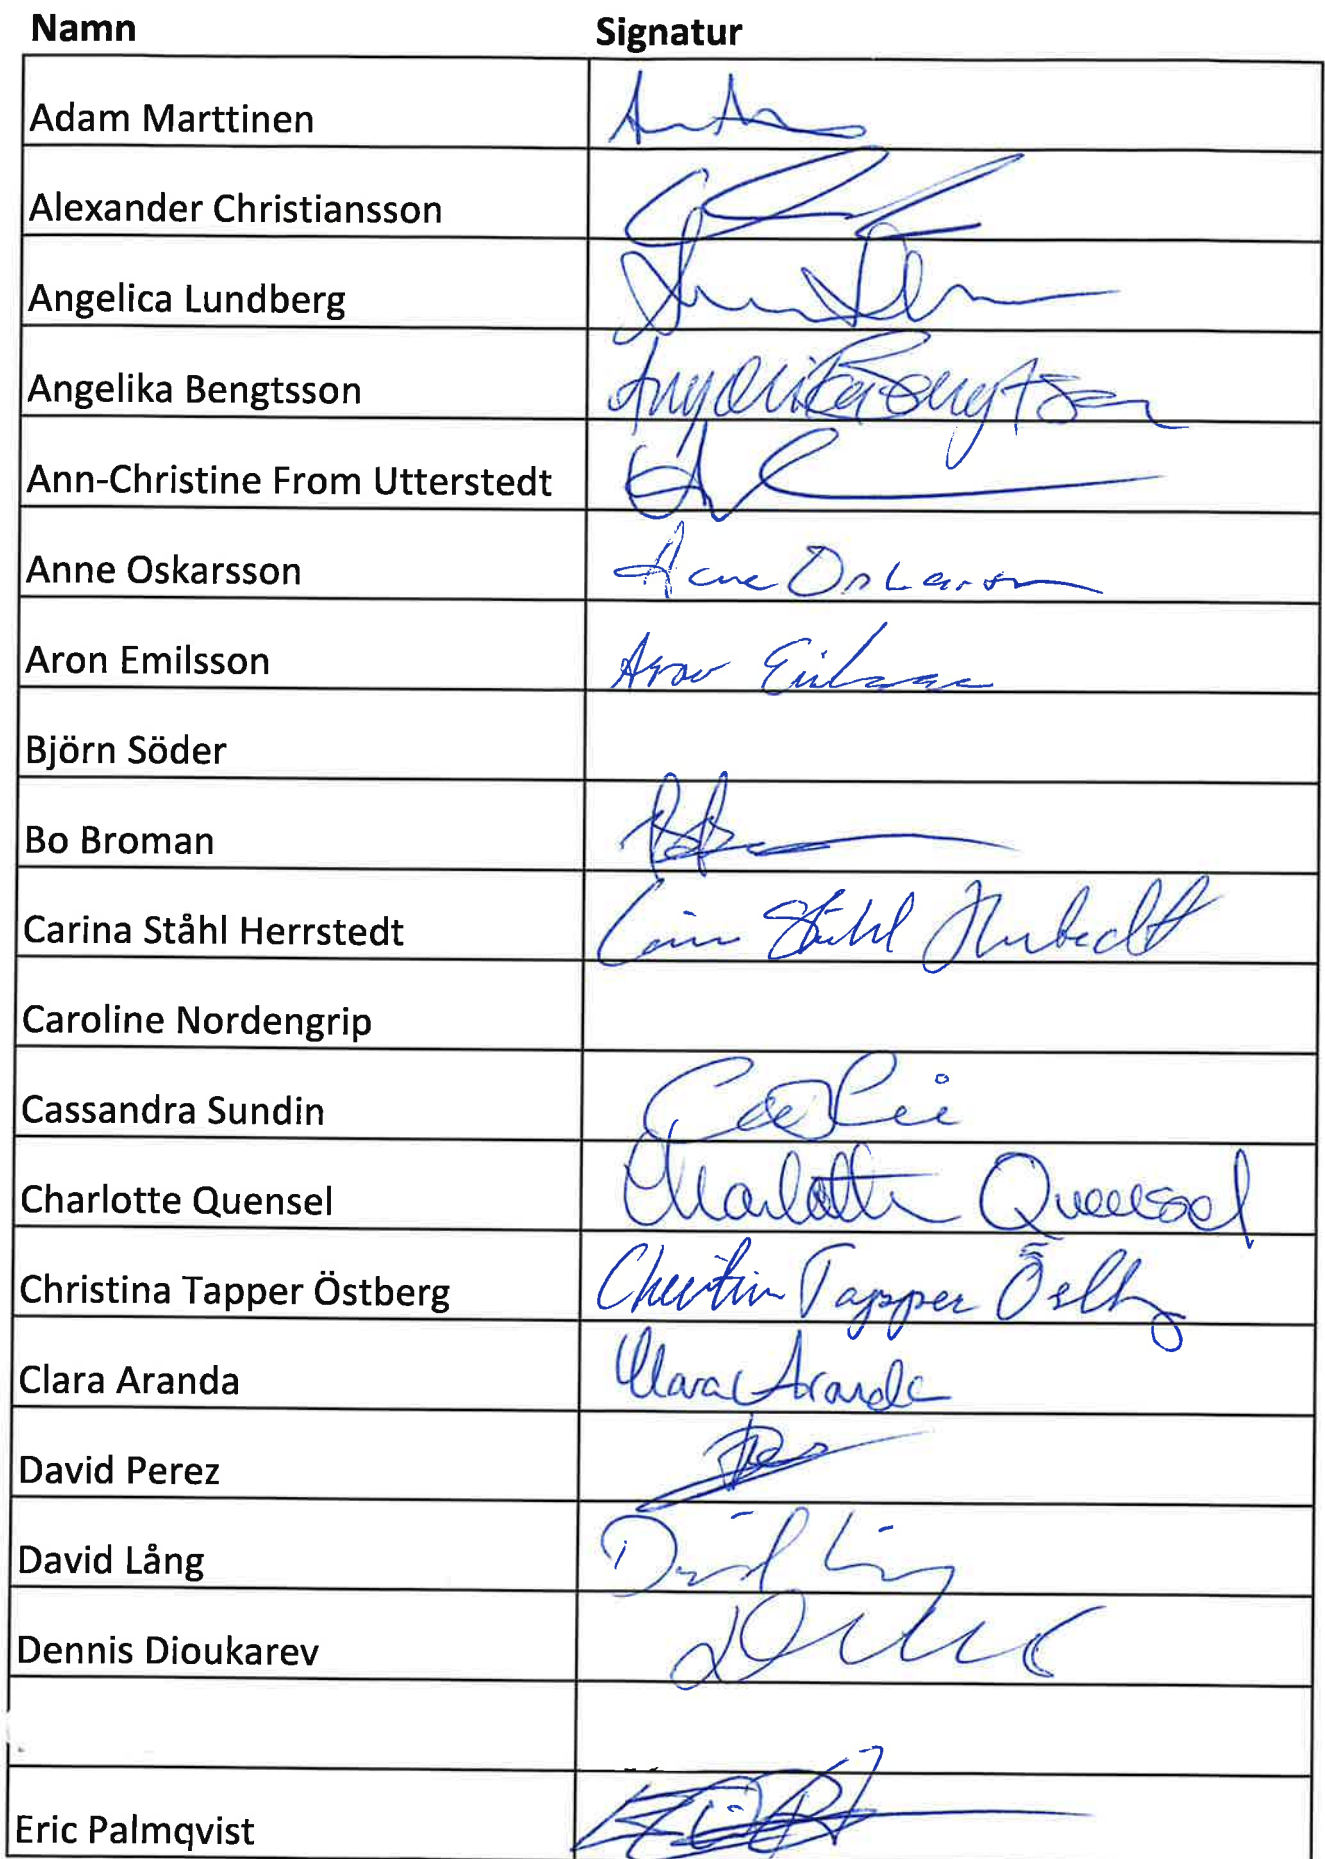 Namn Signatur
Adam Marttinen
Alexander Christiansson
Angelica Lundberg
Angelika Bengtsson Angelika Bengtsson
Ann-Christine From Utterstedt
Anne Oskarsson Anne Oskarsson
Aron Emilsson Aron Emilsson
Björn Söder
Bo Broman
Carina Ståhl Herrstedt Carina Ståhl Herrstedt
Caroline Nordengrip
Cassandra Sundin
Charlotte Quensel Charlotte Quensel
Christina Tapper Östberg Christina Tapper Östberg
Clara Aranda Clara Aranda
David Perez
David Lång David Lång
Dennis Dioukarev
Eric Palmqvist